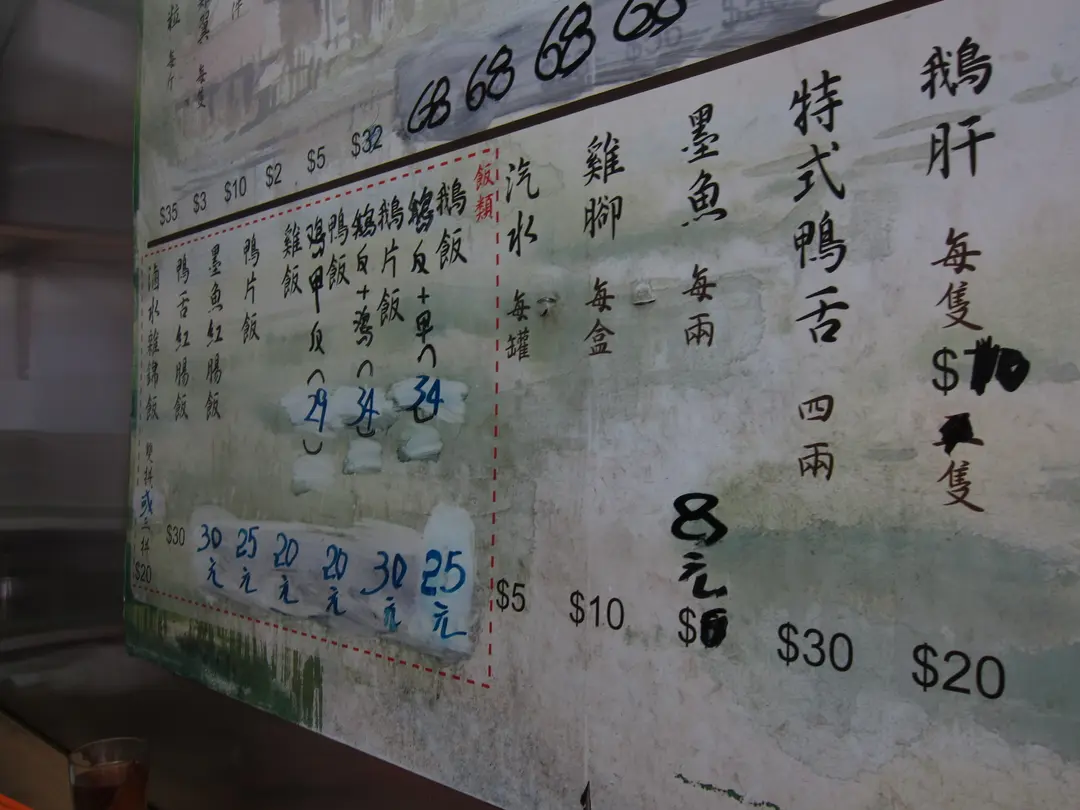 68 68 68 68
$32
$5
$2
$10
$3
$35
翼 每隻
粒 每斤
鵝肝 每隻 $10 隻 $20
特式鴨舌 四兩 $30
墨魚 每兩 8元
雞腳 每盒 $10
汽水 每罐 $5
飯類
鵝飯 25元
反+甲(34)
鵝片飯 30元
反+ (34)
鴨飯 20元
鸡甲反(29)
雞飯 20元
鴨片飯 25元
墨魚紅腸飯 30元
鴨舌紅腸飯 $30
滷水雞錦飯 雙拼或三拼 $20